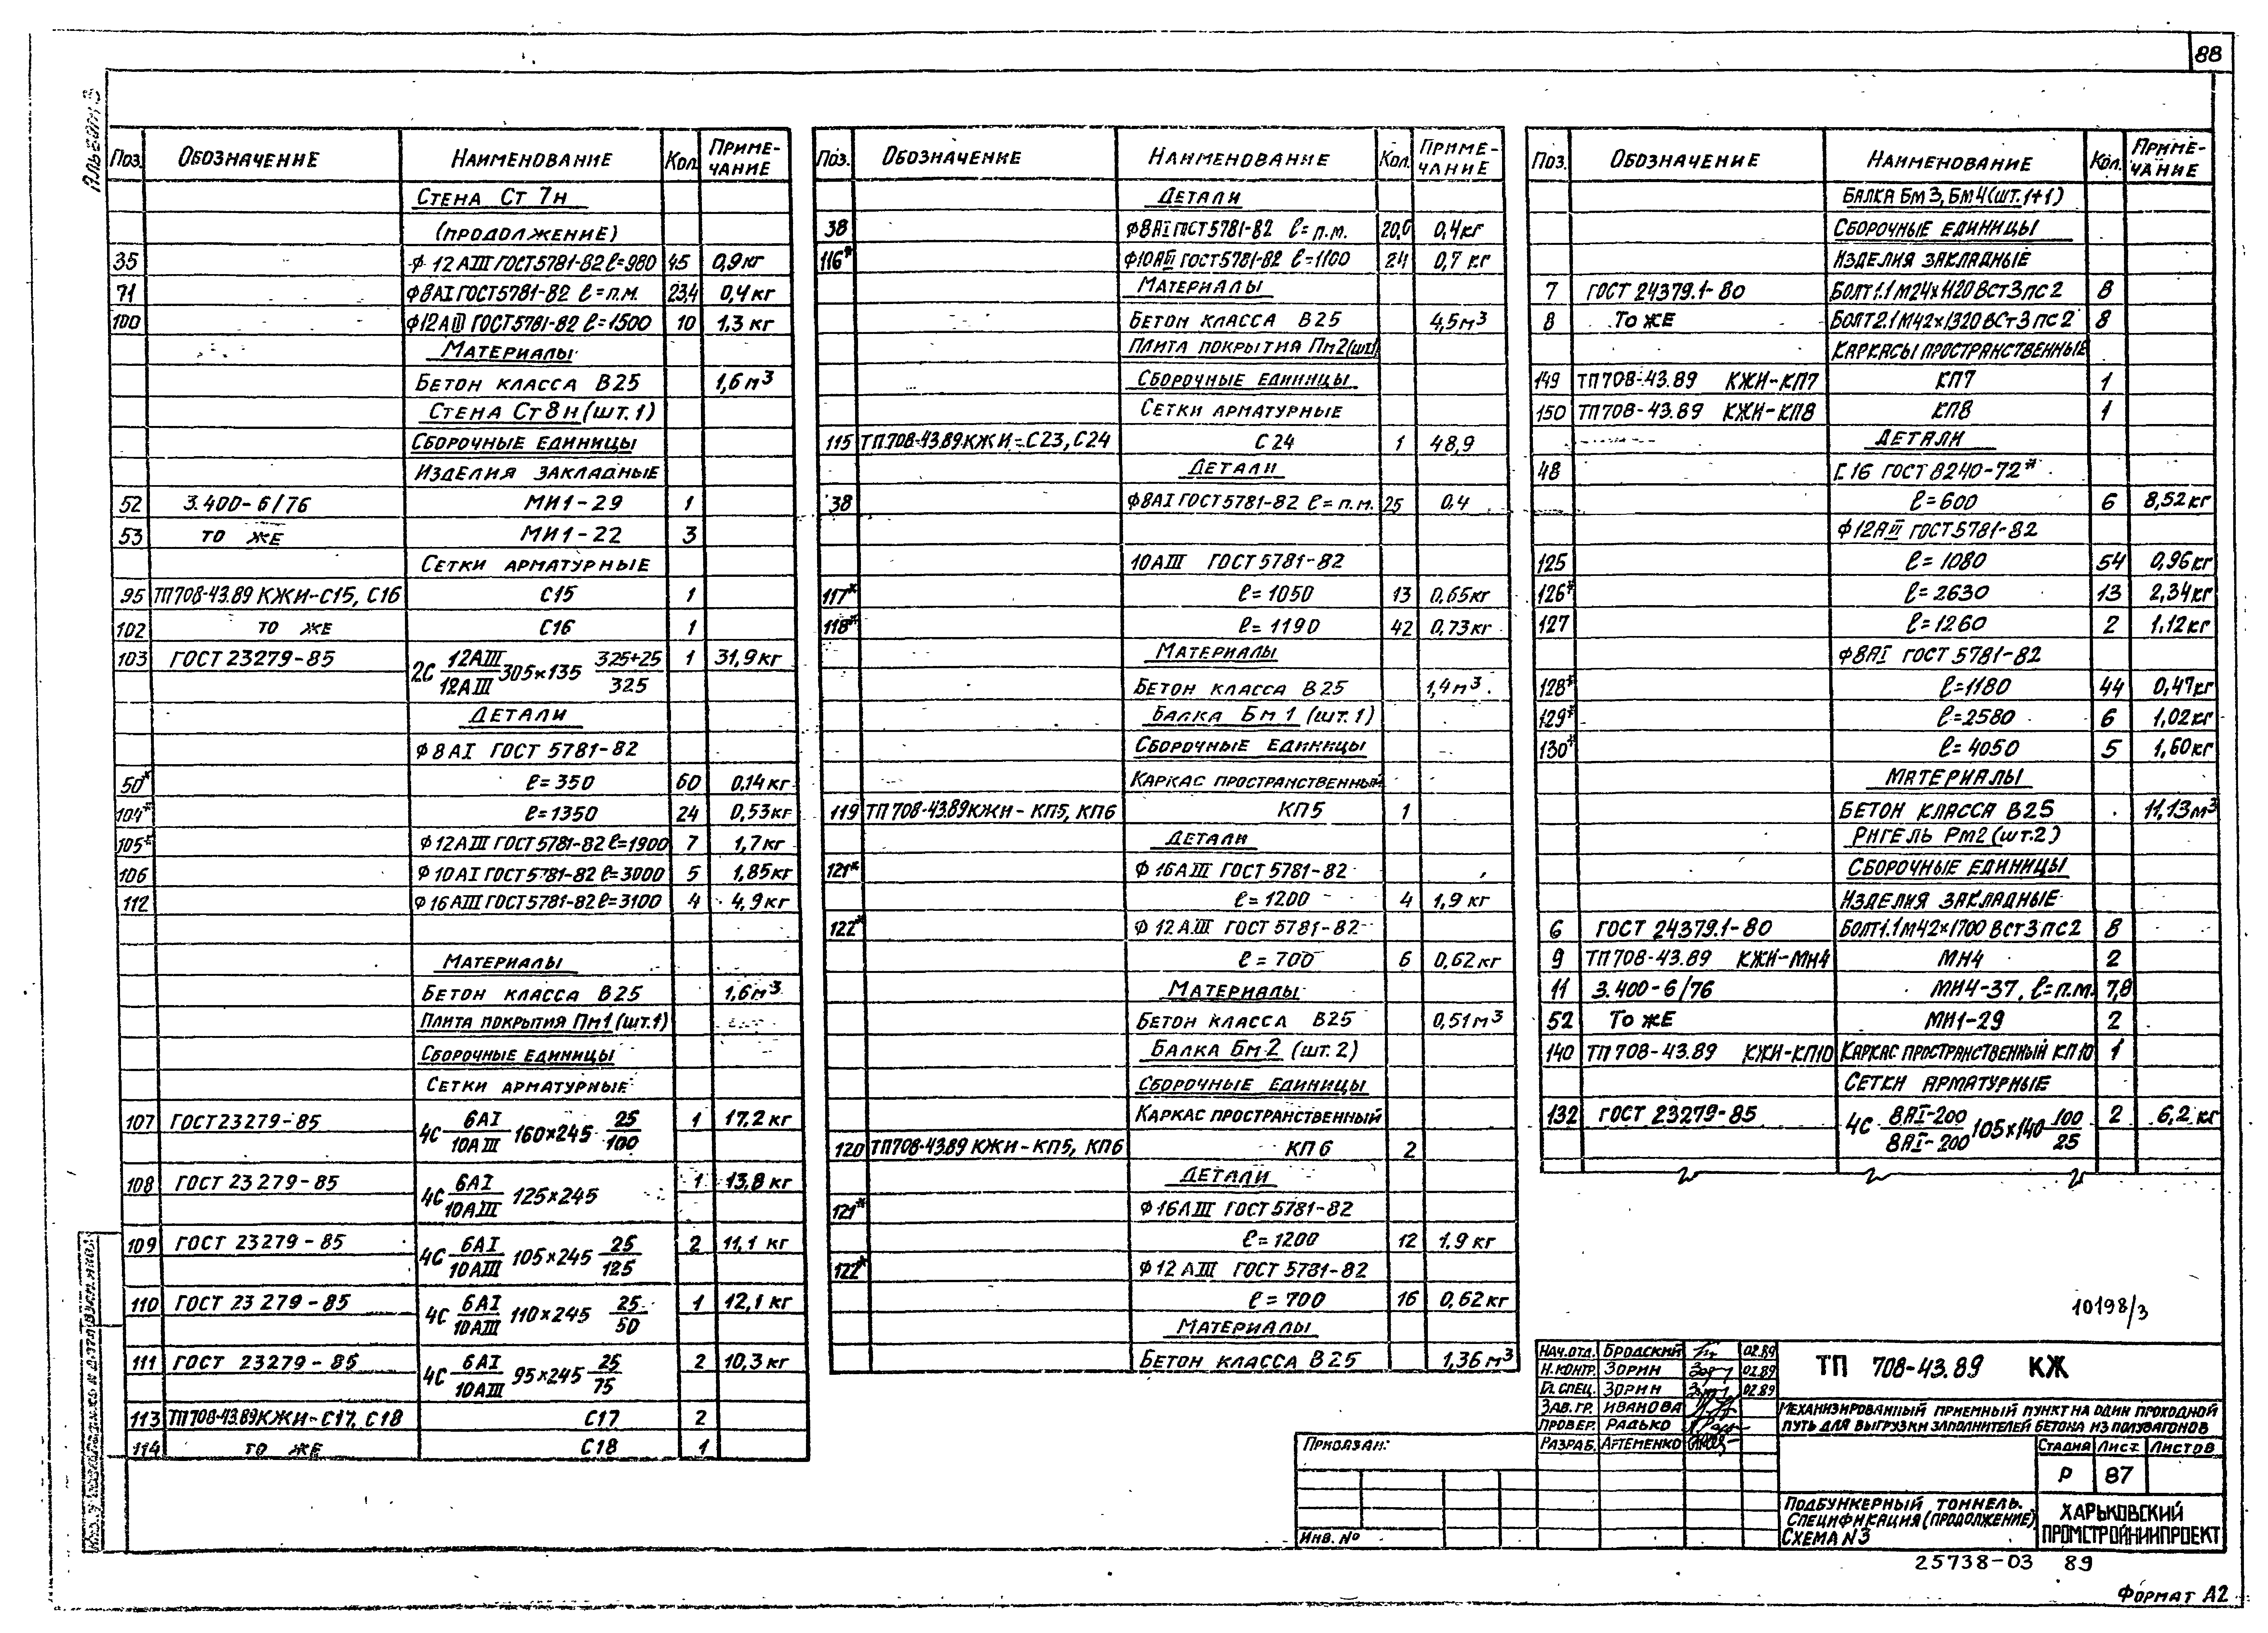 88
Поз. Обозначение Наименование Кол. Приме-чание
Стена Ст 7н
(продолжение)
35 ф 12 АIII ГОСТ 5781-82 ℓ=980 45 0,9 кг
71 ф8АI ГОСТ 5781-82 ℓ=п.м. 23,4 0,4 кг
100 ф12АIII ГОСТ 5781-82 ℓ=1500 10 1,3 кг
Материалы
Бетон класса В25 1,6 м³
Стена Ст8н (шт.1)
Сборочные единицы
Изделия закладные
52 3.400-6/76 МИ1-29 1
53 то же МИ1-22 3
Сетки арматурные
95 ТП708-43.89 КЖИ-С15, С16 С15 1
102 то же С16 1
103 ГОСТ 23279-85 2С 12АIII/12АIII 305×135 325+25/325 1 31,9 кг
Детали
ф8АI ГОСТ 5781-82
50* ℓ=350 60 0,14 кг
104* ℓ=1350 24 0,53 кг
105* ф12АIII ГОСТ 5781-82 ℓ=1900 7 1,7 кг
106 ф10АI ГОСТ 5781-82 ℓ=3000 5 1,85 кг
112 ф16АIII ГОСТ 5781-82 ℓ=3100 4 4,9 кг
Материалы
Бетон класса В25 1,6 м³
Плита покрытия Пм1 (шт.1)
Сборочные единицы
Сетки арматурные
107 ГОСТ 23279-85 4С 6АI/10АIII 160×245 25/100 1 17,2 кг
108 ГОСТ 23279-85 4С 6АI/10АIII 125×245 1 13,8 кг
109 ГОСТ 23279-85 4С 6АI/10АIII 105×245 25/125 2 11,1 кг
110 ГОСТ 23279-85 4С 6АI/10АIII 110×245 25/50 1 12,1 кг
111 ГОСТ 23279-85 4С 6АI/10АIII 95×245 25/75 2 10,3 кг
113 ТП708-43.89 КЖИ-С17, С18 С17 2
114 то же С18 1
Поз. Обозначение Наименование Кол. Приме-чание
Детали
38 ф8АI ГОСТ 5781-82 ℓ=п.м. 20,0 0,4 кг
116* ф10АIII ГОСТ 5781-82 ℓ=1100 24 0,7 кг
Материалы
Бетон класса В25 4,5 м³
Плита покрытия Пм2 (шт1)
Сборочные единицы
Сетки арматурные
115 ТП708-43.89 КЖИ-С23, С24 С24 1 48,9
Детали
38 ф8АI ГОСТ 5781-82 ℓ=п.м. 25 0,4
10АIII ГОСТ 5781-82
117* ℓ=1050 13 0,65 кг
118* ℓ=1190 42 0,73 кг
Материалы
Бетон класса В25 1,4 м³
Балка Бм1 (шт.1)
Сборочные единицы
Каркас пространственный
119 ТП708-43.89 КЖИ-КП5, КП6 КП5 1
Детали
121* ф16АIII ГОСТ 5781-82
ℓ=1200 4 1,9 кг
122* ф12АIII ГОСТ 5781-82
ℓ=700 6 0,62 кг
Материалы
Бетон класса В25 0,51 м³
Балка Бм2 (шт.2)
Сборочные единицы
Каркас пространственный
120 ТП708-43.89 КЖИ-КП5, КП6 КП6 2
Детали
121* ф16АIII ГОСТ 5781-82
ℓ=1200 12 1,9 кг
122* ф12АIII ГОСТ 5781-82
ℓ=700 16 0,62 кг
Материалы
Бетон класса В25 1,36 м³
Поз. Обозначение Наименование Кол. Приме-чание
Балка Бм3, Бм4 (шт.1+1)
Сборочные единицы
Изделия закладные
7 ГОСТ 24379.1-80 Болт1.1 М24×1120 ВСт3пс2 8
8 То же Болт2.1 М42×1320 ВСт3пс2 8
Каркасы пространственные
149 ТП708-43.89 КЖИ-КП7 КП7 1
150 ТП708-43.89 КЖИ-КП8 КП8 1
Детали
48 [16 ГОСТ 8240-72*
ℓ=600 6 8,52 кг
ф12АIII ГОСТ 5781-82
125 ℓ=1080 54 0,96 кг
126* ℓ=2630 13 2,34 кг
127 ℓ=1260 2 1,12 кг
ф8АI ГОСТ 5781-82
128* ℓ=1180 44 0,47 кг
129* ℓ=2580 6 1,02 кг
130* ℓ=4050 5 1,60 кг
Материалы
Бетон класса В25 11,13 м³
Ригель Рм2 (шт.2)
Сборочные единицы
Изделия закладные
6 ГОСТ 24379.1-80 Болт1.1 М42×1700 ВСт3пс2 8
9 ТП708-43.89 КЖИ-МН4 МН4 2
11 3.400-6/76 МИ4-37, ℓ=п.м. 7,8
52 То же МИ1-29 2
140 ТП708-43.89 КЖИ-КП10 Каркас пространственный КП10 1
Сетки арматурные
132 ГОСТ 23279-85 4С 8АI-200/8АI-200 105×140 100/25 2 6,2 кг
10198/3
Нач.отд. Бродский 02.89
Н.контр. Зорин 02.89
Гл.спец. Зорин 02.89
Зав.гр. Иванова
Провер. Радько
Разраб. Артеменко
ТП 708-43.89 КЖ
Механизированный приемный пункт на один проходной путь для выгрузки заполнителей бетона из полувагонов
Стадия Лист Листов
Р 87
Подбункерный тоннель. Спецификация (продолжение) Схема N3
Харьковский Промстройниипроект
Привязан:
Инв. №
25738-03 89
Формат А2